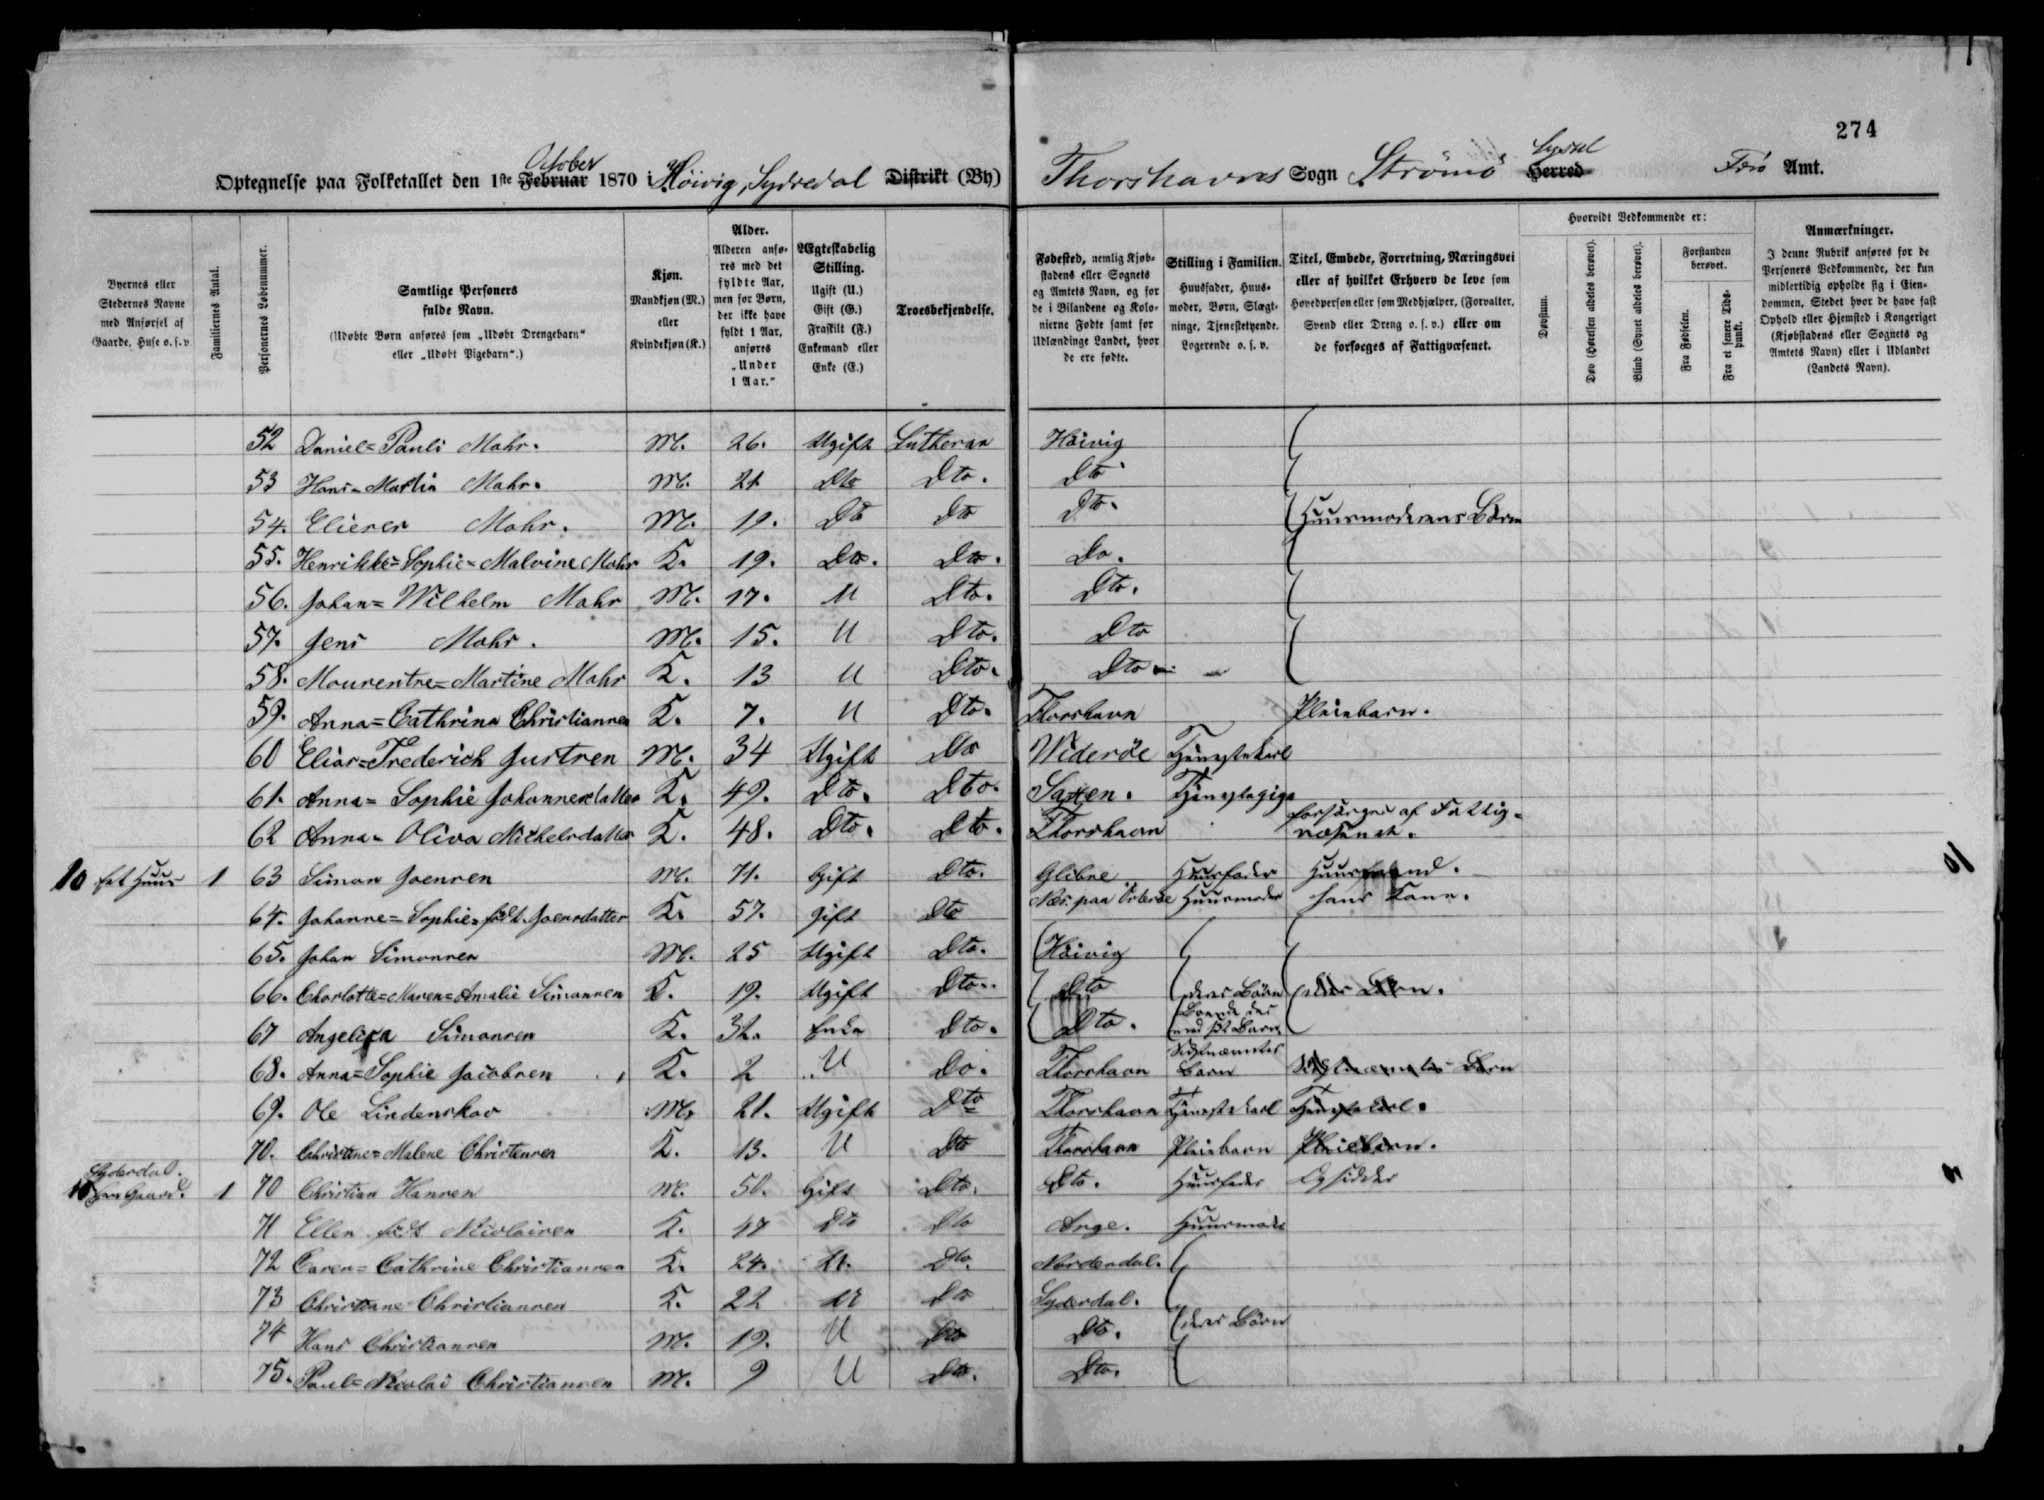 274
October Syssel
Optegnelse paa Folketallet den 1ste Februar 1870 i Höivig, Sydredal Distrikt (By) Thorshavns Sogn Strömö Herred Færö Amt.
Byernes eller Stedernes Navne med Anførsel af Gaarde, Huse o. s. v.
Familiernes Antal.
Personernes Løbenummer.
Samtlige Personers fulde Navn.
(Udøbte Børn anføres som „Udøbt Drengebarn“ eller „Udøbt Pigebarn“.)
Kjøn.
Mandkjøn (M.) eller Kvindekjøn (K.)
Alder.
Alderen anføres med det fyldte Aar, men for Børn, der ikke have fyldt 1 Aar, anføres „Under 1 Aar.“
Ægteskabelig Stilling.
Ugift (U.) Gift (G.) Fraskilt (F.) Enkemand eller Enke (E.)
Troesbekjendelse.
Fødested, nemlig Kjøbstadens eller Sognets og Amtets Navn, og for de i Bilandene og Kolonierne Fødte samt for Udlændinge Landet, hvor de ere fødte.
Stilling i Familien.
Huusfader, Huusmoder, Børn, Slægtninge, Tjenestetyende, Logerende o. s. v.
Titel, Embede, Forretning, Næringsvei eller af hvilket Erhverv de leve som Hovedperson eller som Medhjælper, (Forvalter, Svend eller Dreng o. s. v.) eller om de forsørges af Fattigvæsenet.
Hvorvidt Vedkommende er:
Døvstum.
Døv (Hørelsen aldeles berøvet).
Blind (Synet aldeles berøvet).
Forstanden berøvet.
Fra Fødselen.
Fra et senere Tidspunkt.
Anmærkninger.
I denne Rubrik anføres for de Personers Vedkommende, der kun midlertidig opholde sig i Eiendommen, Stedet hvor de have fast Ophold eller Hjemsted i Kongeriget (Kjøbstadens eller Sognets og Amtets Navn) eller i Udlandet (Landets Navn).
52 Daniel=Pauli Mohr. M. 26. Ugift Lutheran Höivig
53 Hans=Martin Mohr. M. 21 Dto Dto. Dto
54. Elieser Mohr. M. 19. Dto Dto Dto. Huusmoderens Börn
55. Henrikke=Sophie=Malvine Mohr K. 19. Dto. Dto. Do.
56. Johan=Wilhelm Mohr M. 17. U Dto. Dto.
57. Jens Mohr. M. 15. U Dto. Dto
58. Mourentse=Martine Mohr K. 13 U Dto. Dto
59. Anna=Cathrina Christiansen K. 7. U Dto. Thorshavn Pleiebarn.
60 Elias=Frederich Justsen M. 34 Ugift Dto Wideröe Tjenestekarl
61. Anna=Sophie Johannesdatter K. 49. Dto. Dto. Saxen. Tjenestepige
62 Anna=Oliva Michelsdatter K. 48. Dto. Dto. Thorshavn forsörges af Fattigvæsenet.
10 et Huus 1 63 Simon Joensen M. 71. Gift Dto. Glibre Huusfader Huusmand.
64. Johanne=Sophie=född. Joensdatter K. 57. Gift Dto Næs paa Österöe Huusmoder hans Kone.
65. Johan Simonsen M. 25 Ugift Dto. Höivig
66. Charlotte=Maren=Amalie Simonsen K. 19. Ugift Dto. Dto deres Börn deres Börn.
67 Angelica Simonsen K. 32. Enke Dto. Dto.
68. Anna=Sophie Jacobsen K. 2 U Do. Thorshavn Sidstnævntes Barn Sidstnævntes Barn
69. Ole Lindenskov M. 21. Ugift Dto Thorshavn Tjenestekarl Tjenestekarl.
70. Christine=Malene Christensen K. 13. U Dto Thorshavn Pleiebarn Pleiebarn.
Syderdal.
en Gaard. 1 70 Christian Hansen M. 50. Gift Dto. Dto. Huusfader Opsidder
71 Ellen född Nicolaisen K. 47 Dto Dto Ange. Huusmoder
72 Caren=Cathrine Christiansen K. 24. U. Dto. Norderdal.
73 Christiane Christiansen K. 22 U Dto Syderdal.
74 Hans Christiansen M. 19. U Dto Dto. deres Börn
75. Paul=Nicolai Christiansen M. 9 U Dto. Dto.